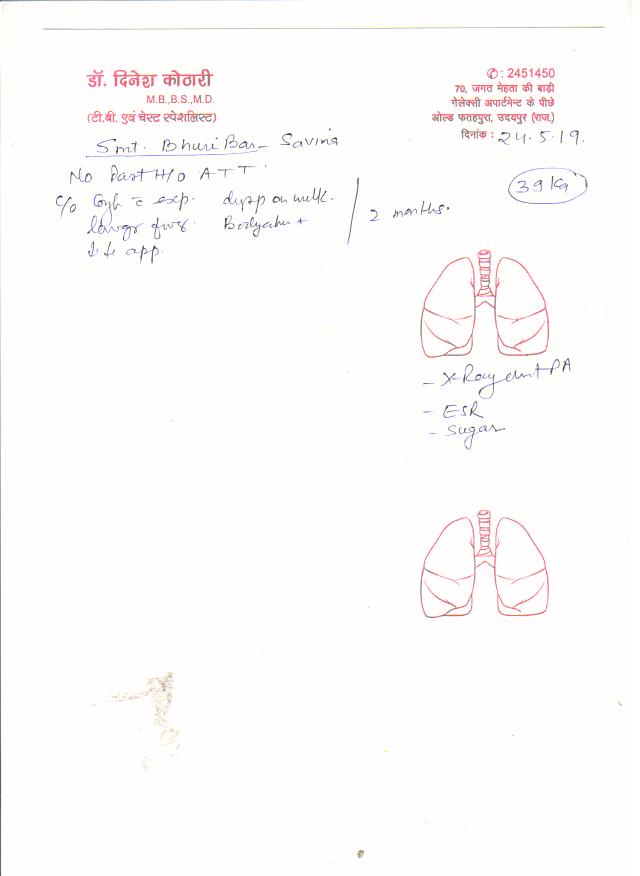 डॉ. दिनेश कोठारी
M.B.,B.S.,M.D.
(टी.बी. एवं चेस्ट स्पेशलिस्ट)
✆: 2451450
70, जगत मेहता की बाड़ी
गेलेक्सी अपार्टमेन्ट के पीछे
ओल्ड फतहपुरा, उदयपुर (राज.)
दिनांक : 24.5.19.
Smt. Bhuri Bai - Savina
No Past H/o ATT
39 Kg
C/o exp. dysp on walk.
2 months.
app.
- X-Ray PA
- ESR
- Sugar